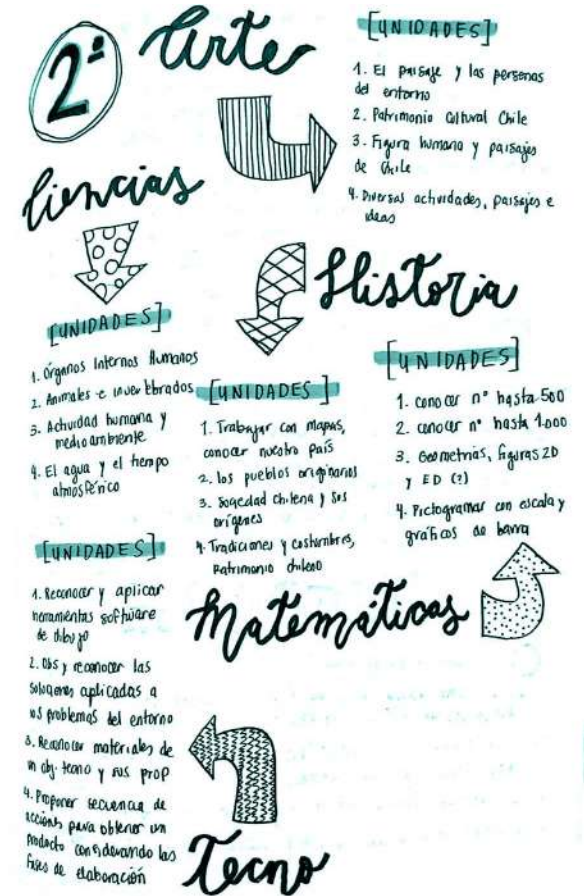 2º
Arte
[UNIDADES]
1. El paisaje y las personas
del entorno
2. Patrimonio Cultural Chile
3. Figura humana y paisajes
de Chile
4. Diversas actividades, paisajes e
ideas
Ciencias
[UNIDADES]
1. Órganos Internos Humanos
2. Animales e invertebrados
3. Actividad humana y
medio ambiente
4. El agua y el tiempo
atmosférico
Historia
[UNIDADES]
1. Trabajar con mapas,
conocer nuestro país
2. los pueblos originarios
3. Sociedad chilena y sus
orígenes
4. Tradiciones y costumbres,
Patrimonio chileno
[UNIDADES]
1. conocer nº hasta 500
2. conocer nº hasta 1.000
3. Geometrías, figuras 2D
y ED (?)
4. Pictogramas con escala y
gráficos de barra
Matemáticas
[UNIDADES]
1. Reconocer y aplicar
herramientas software
de dibujo
2. Obs y reconocer las
soluciones aplicadas a
los problemas del entorno
3. Reconocer materiales de
un obj. tecno y sus prop
4. Proponer secuencia de
acciones para obtener un
producto considerando las
fases de elaboración
Tecno